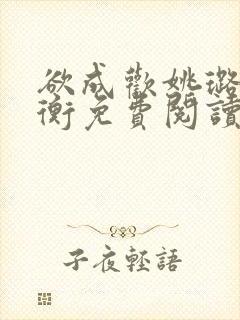 欲成歡姚璐
衡免費閱讀
子夜輕語